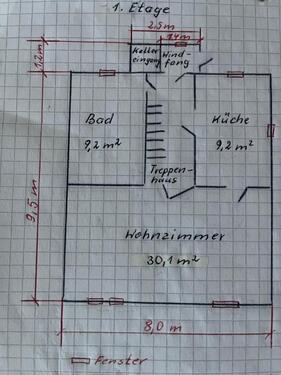 1. Etage
2,5m
1,4m
1,2m
Keller
eingang
Wind-
fang
Bad
9,2 m²
Küche
9,2 m²
Treppen-
haus
9,5 m
Wohnzimmer
30,1 m²
8,0 m
Fenster